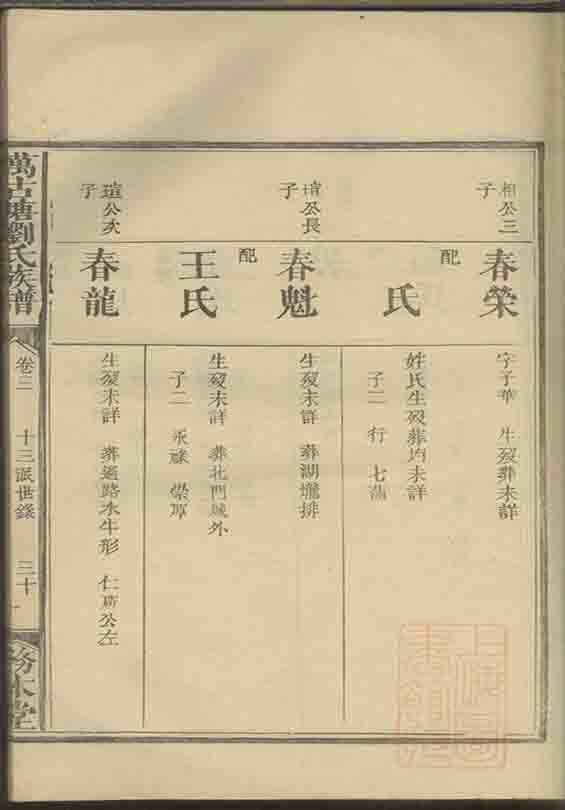 相公三子
春榮
字子華 生歿葬未詳
配
氏
姓氏生歿葬均未詳
子二 行 七蒲
瑄公長子
春魁
生歿未詳 葬湖壠排
配
王氏
生歿未詳 葬北門城外
子二 永祿 榮厚
瑄公次子
春龍
生歿未詳 葬過路水牛形 仁齋公左
萬古塘劉氏族譜
卷二 十三派世錄 三十
務本堂
上海圖書館藏